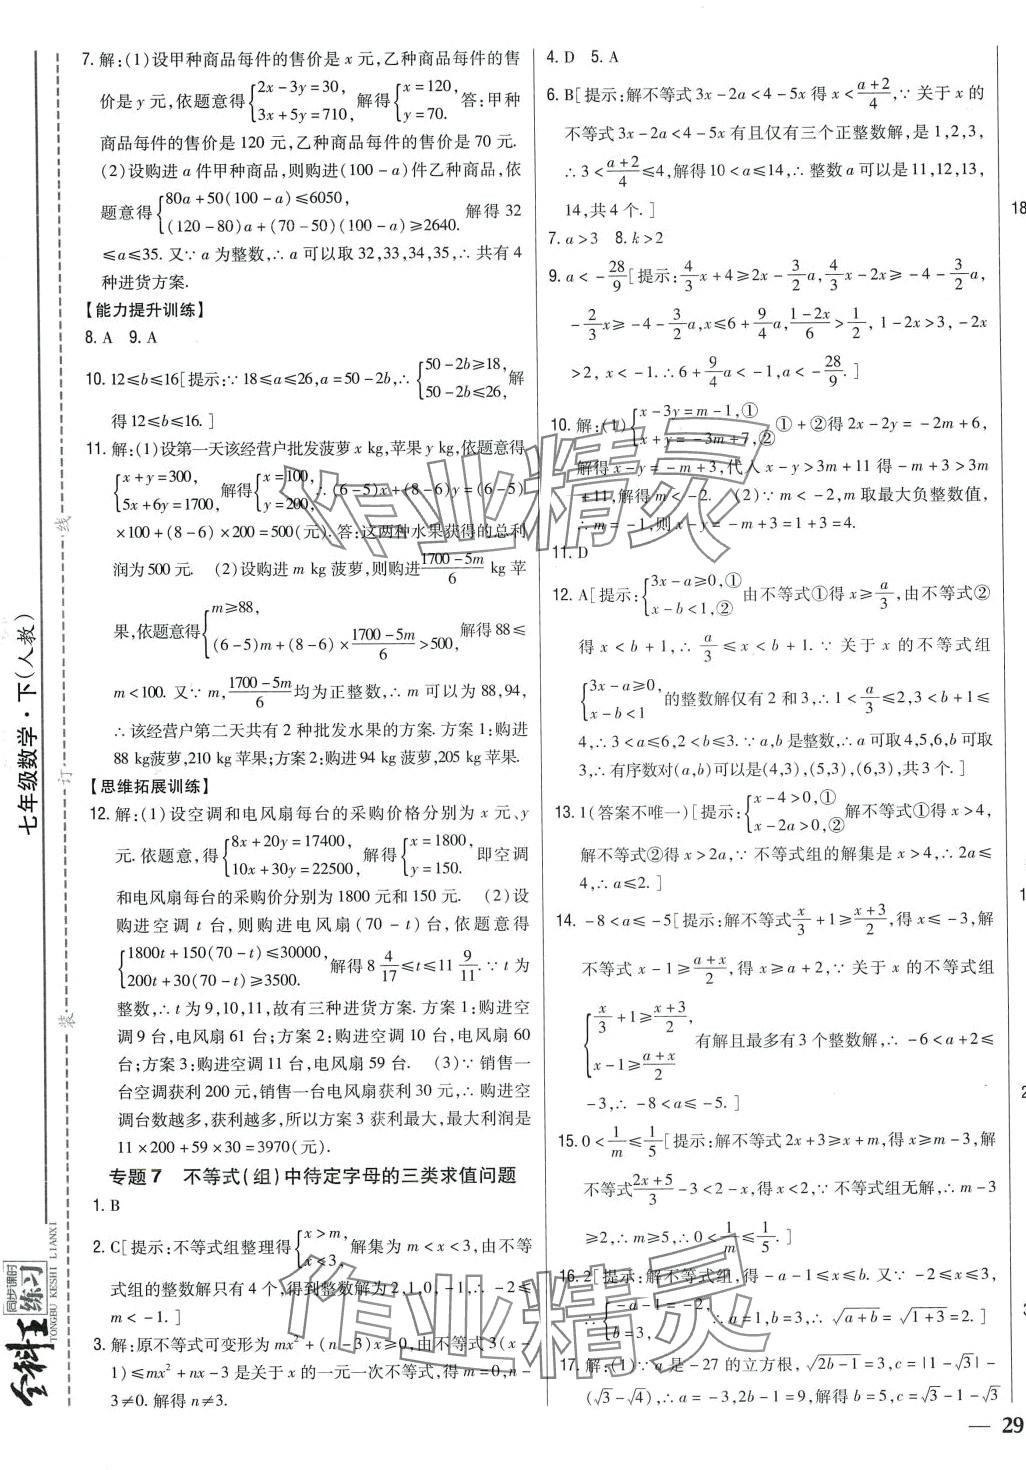 7. 解:(1)设甲种商品每件的售价是 x 元,乙种商品每件的售
价是 y 元,依题意得{2x-3y=30, 3x+5y=710, 解得{x=120, y=70. 答:甲种
商品每件的售价是 120 元,乙种商品每件的售价是 70 元.
(2)设购进 a 件甲种商品,则购进(100-a)件乙种商品,依
题意得{80a+50(100-a)≤6050, (120-80)a+(70-50)(100-a)≥2640. 解得 32
≤a≤35. 又∵a 为整数,∴a 可以取 32,33,34,35,∴共有 4
种进货方案.
【能力提升训练】
8. A 9. A
10. 12≤b≤16[提示:∵18≤a≤26,a=50-2b,∴{50-2b≥18, 50-2b≤26, 解
得 12≤b≤16. ]
11. 解:(1)设第一天该经营户批发菠萝 x kg,苹果 y kg,依题意得
{x+y=300, 5x+6y=1700, 解得{x=100, y=200, ∴(6-5)x+(8-6)y=(6-5)
×100+(8-6)×200=500(元). 答:这两种水果获得的总利
润为 500 元. (2)设购进 m kg 菠萝,则购进(1700-5m)/6 kg 苹
果,依题意得{m≥88, (6-5)m+(8-6)×(1700-5m)/6>500, 解得 88≤
m<100. 又∵m,(1700-5m)/6均为正整数,∴m 可以为 88,94,
∴该经营户第二天共有 2 种批发水果的方案. 方案 1:购进
88 kg菠萝,210 kg 苹果;方案 2:购进94 kg菠萝,205 kg 苹果.
【思维拓展训练】
12. 解:(1)设空调和电风扇每台的采购价格分别为 x 元、y
元. 依题意,得{8x+20y=17400, 10x+30y=22500, 解得{x=1800, y=150. 即空调
和电风扇每台的采购价分别为 1800 元和 150 元. (2)设
购进空调 t 台,则购进电风扇(70-t)台,依题意得
{1800t+150(70-t)≤30000, 200t+30(70-t)≥3500. 解得 8 4/17≤t≤11 9/11. ∵t 为
整数,∴t 为 9,10,11,故有三种进货方案. 方案 1:购进空
调 9 台,电风扇 61 台;方案 2:购进空调 10 台,电风扇 60
台;方案 3:购进空调 11 台,电风扇 59 台. (3)∵销售一
台空调获利 200 元,销售一台电风扇获利 30 元,∴购进空
调台数越多,获利越多,所以方案 3 获利最大,最大利润是
11×200+59×30=3970(元).
专题 7 不等式(组)中待定字母的三类求值问题
1. B
2. C[提示:不等式组整理得{x>m, x<3, 解集为 m<x<3,由不等
式组的整数解只有 4 个,得到整数解为 2,1,0,-1,∴-2≤
m<-1. ]
3. 解:原不等式可变形为 mx²+(n-3)x≥0,由不等式 3(x-
1)≤mx²+nx-3 是关于 x 的一元一次不等式,得 m=0,n-
3≠0. 解得 n≠3.
4. D 5. A
6. B[提示:解不等式 3x-2a<4-5x 得 x<(a+2)/4,∵关于 x 的
不等式 3x-2a<4-5x 有且仅有三个正整数解,是 1,2,3,
∴3<(a+2)/4≤4,解得 10<a≤14,∴整数 a 可以是 11,12,13,
14,共 4 个. ]
7. a>3 8. k>2
9. a<-28/9[提示:4/3x+4≥2x-3/2a,4/3x-2x≥-4-3/2a,
-2/3x≥-4-3/2a,x≤6+9/4a,(1-2x)/6>1/2,1-2x>3,-2x
>2,x<-1. ∴6+9/4a<-1,a<-28/9. ]
10. 解:(1){x-3y=m-1,① x+y=-3m+7,② ①+②得 2x-2y=-2m+6,
解得 x-y=-m+3,代入 x-y>3m+11 得-m+3>3m
+11,解得 m<-2. (2)∵m<-2,m 取最大负整数值,
∴m=-1,则 x-y=-m+3=1+3=4.
11. D
12. A[提示:{3x-a≥0,① x-b<1,② 由不等式①得 x≥a/3,由不等式②
得 x<b+1,∴a/3≤x<b+1. ∵关于 x 的不等式组
{3x-a≥0, x-b<1 的整数解仅有 2 和 3,∴1<a/3≤2,3<b+1≤
4,∴3<a≤6,2<b≤3. ∵a,b 是整数,∴a 可取4,5,6,b 可取
3,∴有序数对(a,b)可以是(4,3),(5,3),(6,3),共3 个. ]
13. 1(答案不唯一)[提示:{x-4>0,① x-2a>0,② 解不等式①得 x>4,
解不等式②得 x>2a,∵不等式组的解集是 x>4,∴2a≤
4,∴a≤2. ]
14. -8<a≤-5[提示:解不等式x/3+1≥(x+3)/2,得 x≤-3,解
不等式 x-1≥(a+x)/2,得 x≥a+2,∵关于 x 的不等式组
{x/3+1≥(x+3)/2, x-1≥(a+x)/2 有解且最多有 3 个整数解,∴-6<a+2≤
-3,∴-8<a≤-5. ]
15. 0<1/m≤1/5[提示:解不等式 2x+3≥x+m,得 x≥m-3,解
不等式(2x+5)/3-3<2-x,得 x<2,∵不等式组无解,∴m-3
≥2,∴m≥5,∴0<1/m≤1/5. ]
16. 2[提示:解不等式组,得-a-1≤x≤b. 又∵-2≤x≤3,
∴{-a-1=-2, b=3, ∴a=1,b=3,∴√(a+b)=√(1+3)=2. ]
17. 解:(1)∵a 是-27 的立方根,√(2b-1)=3,c=|1-√3|-
(√3-√4),∴a=-3,2b-1=9,解得 b=5,c=√3-1-√3
— 29
18
七年级数学·下(人教)
装 订 线
全科王
同步课时
练习
TONGBU KESHI LIANXI
作业精灵
作业精灵